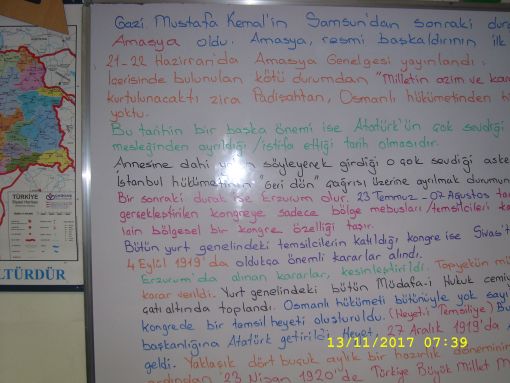 Gazi Mustafa Kemal'in Samsun'dan sonraki dura
Amasya oldu. Amasya, resmi başkaldırının ilk
21-22 Hazirran'da Amasya Genelgesi yayınlandı.
İçerisinde bulunulan kötü durumdan "Milletin azim ve kar
kurtulunacaktı zira Padişahtan, Osmanlı hükümetinden
yoktu.
Bu tarihin bir başka önemi ise Atatürk'ün çok sevdiği
mesleğinden ayrıldığı /istifa ettiği tarih olmasıdır.
Annesine dahi söyleyerek girdiği o çok sevdiği aske
İstanbul hükümetinin "Geri dön" çağrısı üzerine ayrılmak durumun
Bir sonraki durak ise Erzurum olur. 23 Temmuz - 07 Ağustos ta
gerçekleştirilen kongreye sadece bölge mebusları/temsilcileri
bölgesel bir kongre özelliği taşır.
Bütün yurt genelindeki temsilcilerin katıldığı, kongre ise Sivas't
4 Eylül 1919'da oldukça önemli kararlar alındı.
Erzurum'da alınan kararlar, kesinleştirildi. Topyekün m
karar verildi. Yurt genelindeki bütün Müdafa-i Hukuk cemiy
çatı altında toplandı. Osmanlı hükümeti bütünüyle yok sayı
kongrede bir temsil heyeti oluşturuldu. (Heyet-i Temsiliye) Bu
başkanlığına Atatürk getirildi. Heyet, 27 Aralık 1919'da A
geldi. Yaklaşık dört buçuk aylık bir hazırlık döneminin
ardından 23 Nisan 1920'de Türkiye Büyük Millet M
TÜRKİYE
LTÜRDÜR
13/11/2017 07:39